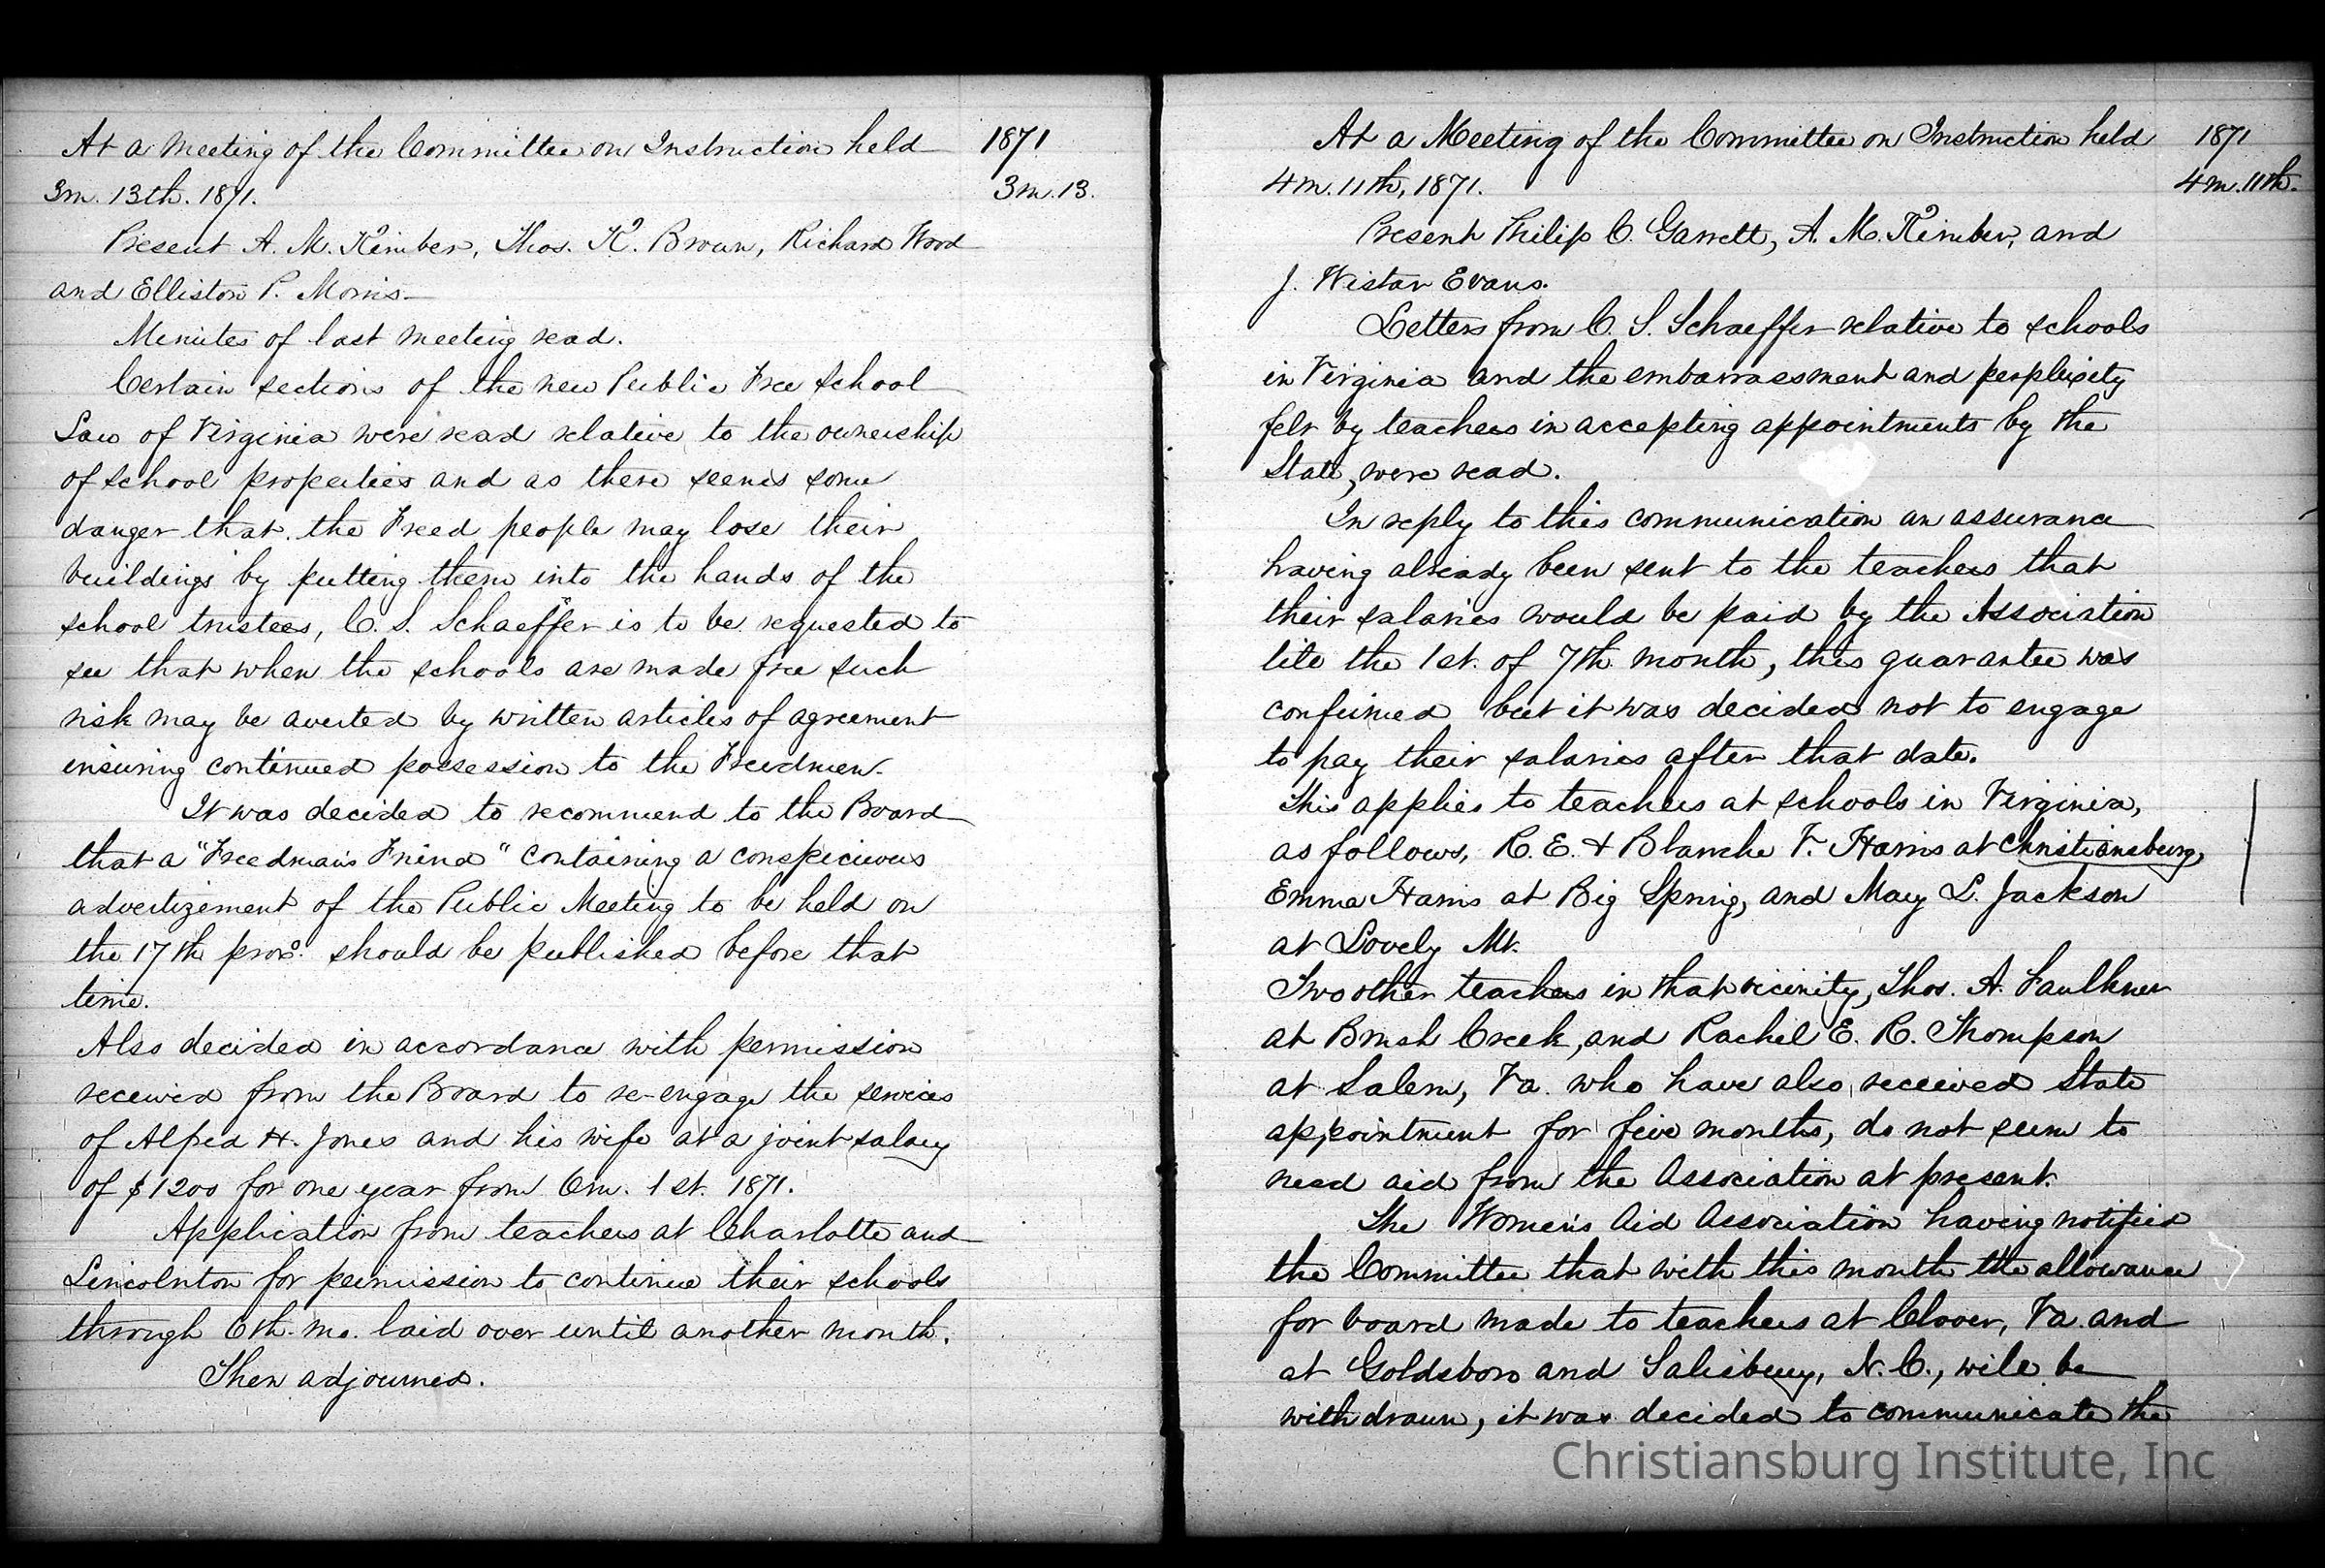 At a Meeting of the Committee on Instruction held 1871
3m. 13th. 1871. 3m. 13.
Present A. M. Kimber, Thos. K. Brown, Richard Wood
and Elliston P. Morris.
Minutes of last meeting read.
Certain sections of the new Public Free School
Law of Virginia were read relative to the ownership
of school properties and as there seems some
danger that the Freed people may lose their
buildings by putting them into the hands of the
school trustees, C. S. Schaeffer is to be requested to
see that when the schools are made free such
risk may be averted by written articles of agreement
insuring continued possession to the Freedmen.
It was decided to recommend to the Board
that a "Freedman's Friend" containing a conspicuous
advertizement of the Public Meeting to be held on
the 17th proxo. should be published before that
time.
Also decided in accordance with permission
received from the Board to re-engage the services
of Alfred H. Jones and his wife at a joint salary
of $1200 for one year from 6m. 1st. 1871.
Application from teachers at Charlotte and
Lincolnton for permission to continue their schools
through 6th. mo. laid over until another month.
Then adjourned.
At a Meeting of the Committee on Instruction held 1871
4m. 11th, 1871. 4m. 11th.
Present Philip C. Garrett, A. M. Kimber, and
J. Wistar Evans.
Letters from C. S. Schaeffer relative to schools
in Virginia and the embarrassment and perplexity
felt by teachers in accepting appointments by the
State, were read.
In reply to this communication an assurance
having already been sent to the teachers that
their salaries would be paid by the Association
till the 1st. of 7th month, this guarantee was
confirmed but it was decided not to engage
to pay their salaries after that date.
This applies to teachers at schools in Virginia,
as follows, R. E. & Blanche V. Harris at Christiansburg,
Emma Harris at Big Spring, and Mary L. Jackson
at Lovely Mt.
Two other teachers in that vicinity, Thos. A. Faulkner
at Brush Creek, and Rachel E. R. Thompson
at Salem, Va. who have also received State
appointment for five months, do not seem to
need aid from the Association at present.
The Women's Aid Association having notified
the Committee that with this month the allowance
for board made to teachers at Clover, Va. and
at Goldsboro and Salisbury, N. C., will be
withdrawn, it was decided to communicate the
Christiansburg Institute, Inc